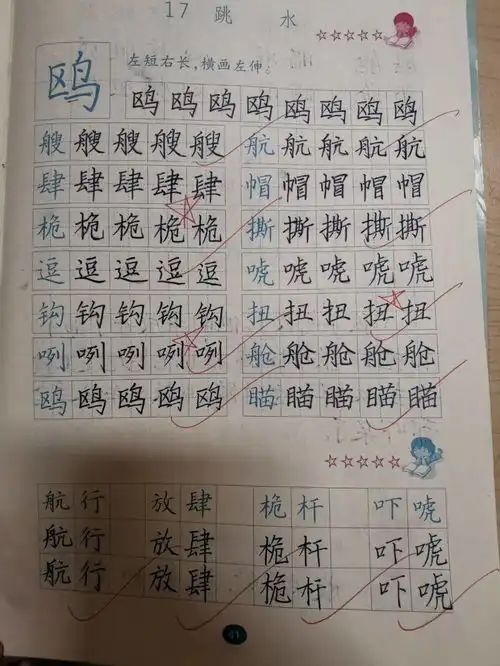 17 跳 水
左短右长,横画左伸。
鸥 鸥 鸥 鸥 鸥 鸥 鸥 鸥 鸥
艘 艘 艘 艘 艘 航 航 航 航 航
肆 肆 肆 肆 肆 帽 帽 帽 帽 帽
桅 桅 桅 桅 桅 撕 撕 撕 撕 撕
逗 逗 逗 逗 逗 唬 唬 唬 唬 唬
钩 钩 钩 钩 钩 扭 扭 扭 扭 扭
咧 咧 咧 咧 咧 舱 舱 舱 舱 舱
鸥 鸥 鸥 鸥 鸥 瞄 瞄 瞄 瞄 瞄
航 行 放 肆 桅 杆 吓 唬
航 行 放 肆 桅 杆 吓 唬
航 行 放 肆 桅 杆 吓 唬
41